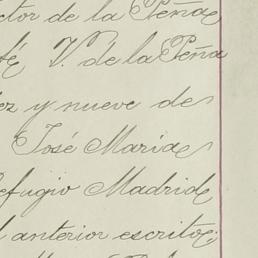 ctor de la Peña
fé V. de la Peña
ez y nueve de
José Maria
efugio Madrid
l anterior escrito;